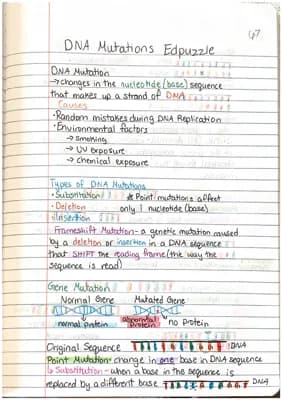 67
DNA Mutations Edpuzzle
DNA Mutation
→changes in the nucleotide (base) sequence
that makes up a strand of DNA
Causes
•Random mistakes during DNA Replication
•Environmental factors
→ Smoking
→ UV exposure
→ chemical exposure
Types of DNA Mutations
•Substitution * Point mutations affect
•Deletion only 1 nucleotide (base)
•Insertion
Frameshift Mutation- a genetic mutation caused
by a deletion or insertion in a DNA sequence
that SHIFT the reading frame (the way the
sequence is read)
Gene Mutation
Normal Gene Mutated Gene
normal protein abnormal protein no protein
Original Sequence DNA
Point Mutation- change in one base in DNA sequence
↳ Substitution - when a base in the sequence is
replaced by a different base DNA